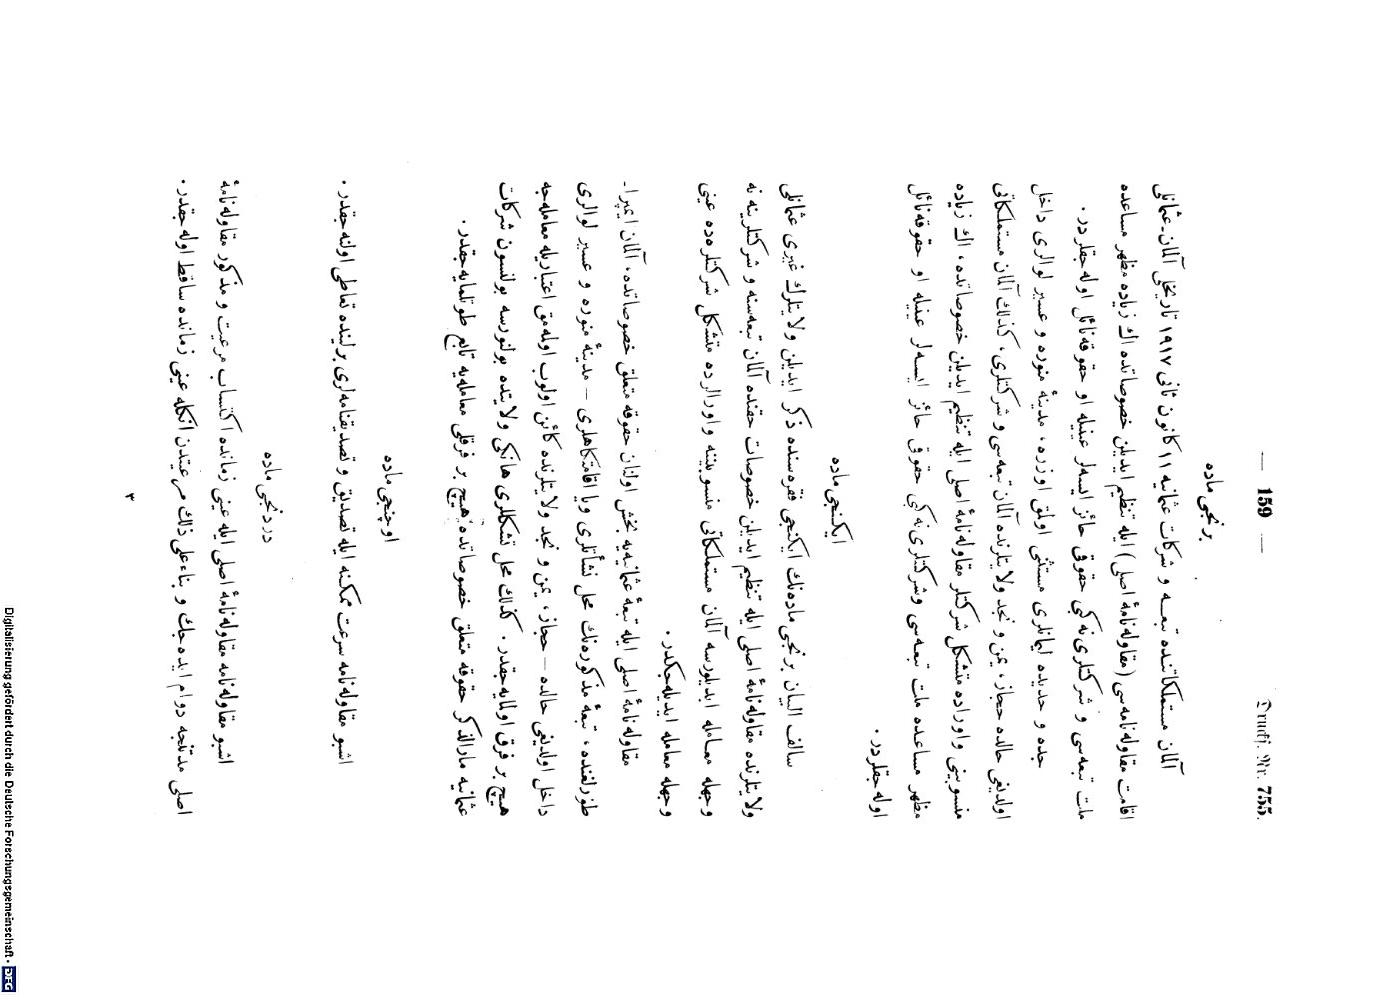 — 159 —
Druckf. Nr. 755.
برنجی ماده
آلمان مستملكاتنده تبعه و شركات عثمانیه ١١ كانون ثانی ١٩١٧ تاریخلی آلمان ـ عثمانلی
اقامت مقاوله نامه سی (مقاوله نامۀ اصلی) ایله تنظیم ایدیلن خصوصاتده اك زیاده مظهر مساعده
ملت تبعه سی و شركتلری نه كبی حقوقی حائز ایسه لر عینیله او حقوقه نائل اوله جقلردر .
جده و حدیده لیمانلری مستثنی اولمق اوزره ، مدینۀ منوره و عسیر لوالری داخل
اولدیغی حالده حجاز ، یمن و نجد ولایتلرنده آلمان تبعه سی و شركتلری ، كذلك آلمان مستملكاتی
منسوبینی و اوراده متشكل شركتلر مقاوله نامۀ اصلی ایله تنظیم ایدیلن خصوصاتده ، اك زیاده
مظهر مساعده ملت تبعه سی و شركتلری نه كبی حقوقی حائز ایسه لر عینیله او حقوقه نائل
اوله جقلردر .
ایكنجی ماده
سالف البیان برنجی ماده نك ایكنجی فقره سنده ذكر ایدیلن ولایتلرك غیری عثمانلی
ولایتلرنده مقاوله نامۀ اصلی ایله تنظیم ایدیلن خصوصات حقنده آلمان تبعه سنه و شركتلرینه نه
وجهله معامله ایدیلورسه آلمان مستملكاتی منسوبیننه و اورالرده متشكل شركتلره ده عینی
وجهله معامله ایدیله جكدر .
مقاوله نامۀ اصلی ایله تبعۀ عثمانیه یه بخش اولنان حقوقه متعلق خصوصاتده ، آلمان ایمپرا ـ
طورلغنده ، تبعۀ مذكوره نك محل نشأتلری ویا اقامتكاهلری — مدینۀ منوره و عسیر لوالری
داخل اولدیغی حالده — حجاز ، یمن و نجد ولایتلرنده كائن اولوب اولمامق اعتباریله معامله جه
هیچ بر فرق اولمایه جقدر . كذلك محل تشكللری هانكی ولایتده بولنورسه بولنسون شركات
عثمانیه مارالذكر حقوقه متعلق خصوصاتده هیچ بر فرقلی معامله یه تابع طوتلمایه جقدر .
اوچنجی ماده
اشبو مقاوله نامه سرعت ممكنه ایله تصدیق و تصدیقنامه لری برلینده تعاطی اولنه جقدر .
دردنجی ماده
اشبو مقاوله نامه مقاوله نامۀ اصلی ایله عینی زمانده اكتساب مرعیت و مذكور مقاوله نامۀ
اصلی مدتنجه دوام ایده جك و بناءً علی ذلك مرعیتدن انكله عینی زمانده ساقط اوله جقدر .
٣
Digitalisierung gefördert durch die Deutsche Forschungsgemeinschaft - DFG